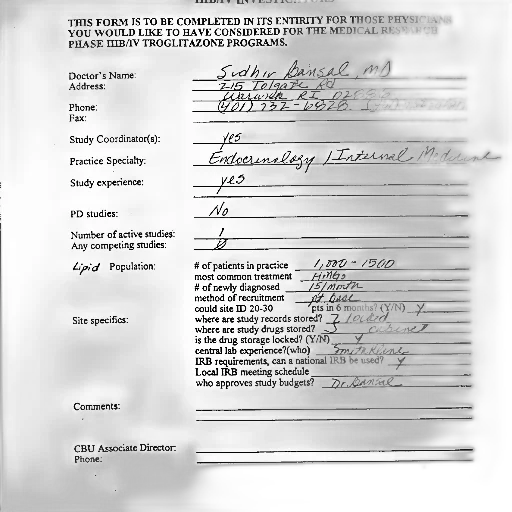 THIS FORM IS TO BE COMPLETED IN ITS ENTIRITY FOR THOSE PHYSICIANS
YOU WOULD LIKE TO HAVE CONSIDERED FOR THE MEDICAL RESEARCH
PHASE IIIB/IV TROGLITAZONE PROGRAMS.
Doctor's Name: Sudhir Bansal, MD
Address: 215 Tolgate Rd
Warwick RI
Phone: (401) 732-6828
Fax:
Study Coordinator(s): yes
Practice Specialty: Endocrinology / Internal Medicine
Study experience: yes
PD studies: No
Number of active studies: 1
Any competing studies: 0
Lipid Population: # of patients in practice 1,000 - 1500
most common treatment HMGs
# of newly diagnosed 15/month
method of recruitment pt base
could site ID 20-30 pts in 6 months? (Y/N) Y
Site specifics: where are study records stored? locked
where are study drugs stored? cabinet
is the drug storage locked? (Y/N) Y
central lab experience?(who) SmithKline
IRB requirements, can a national IRB be used? Y
Local IRB meeting schedule
who approves study budgets? Dr. Bansal
Comments:
CBU Associate Director:
Phone: